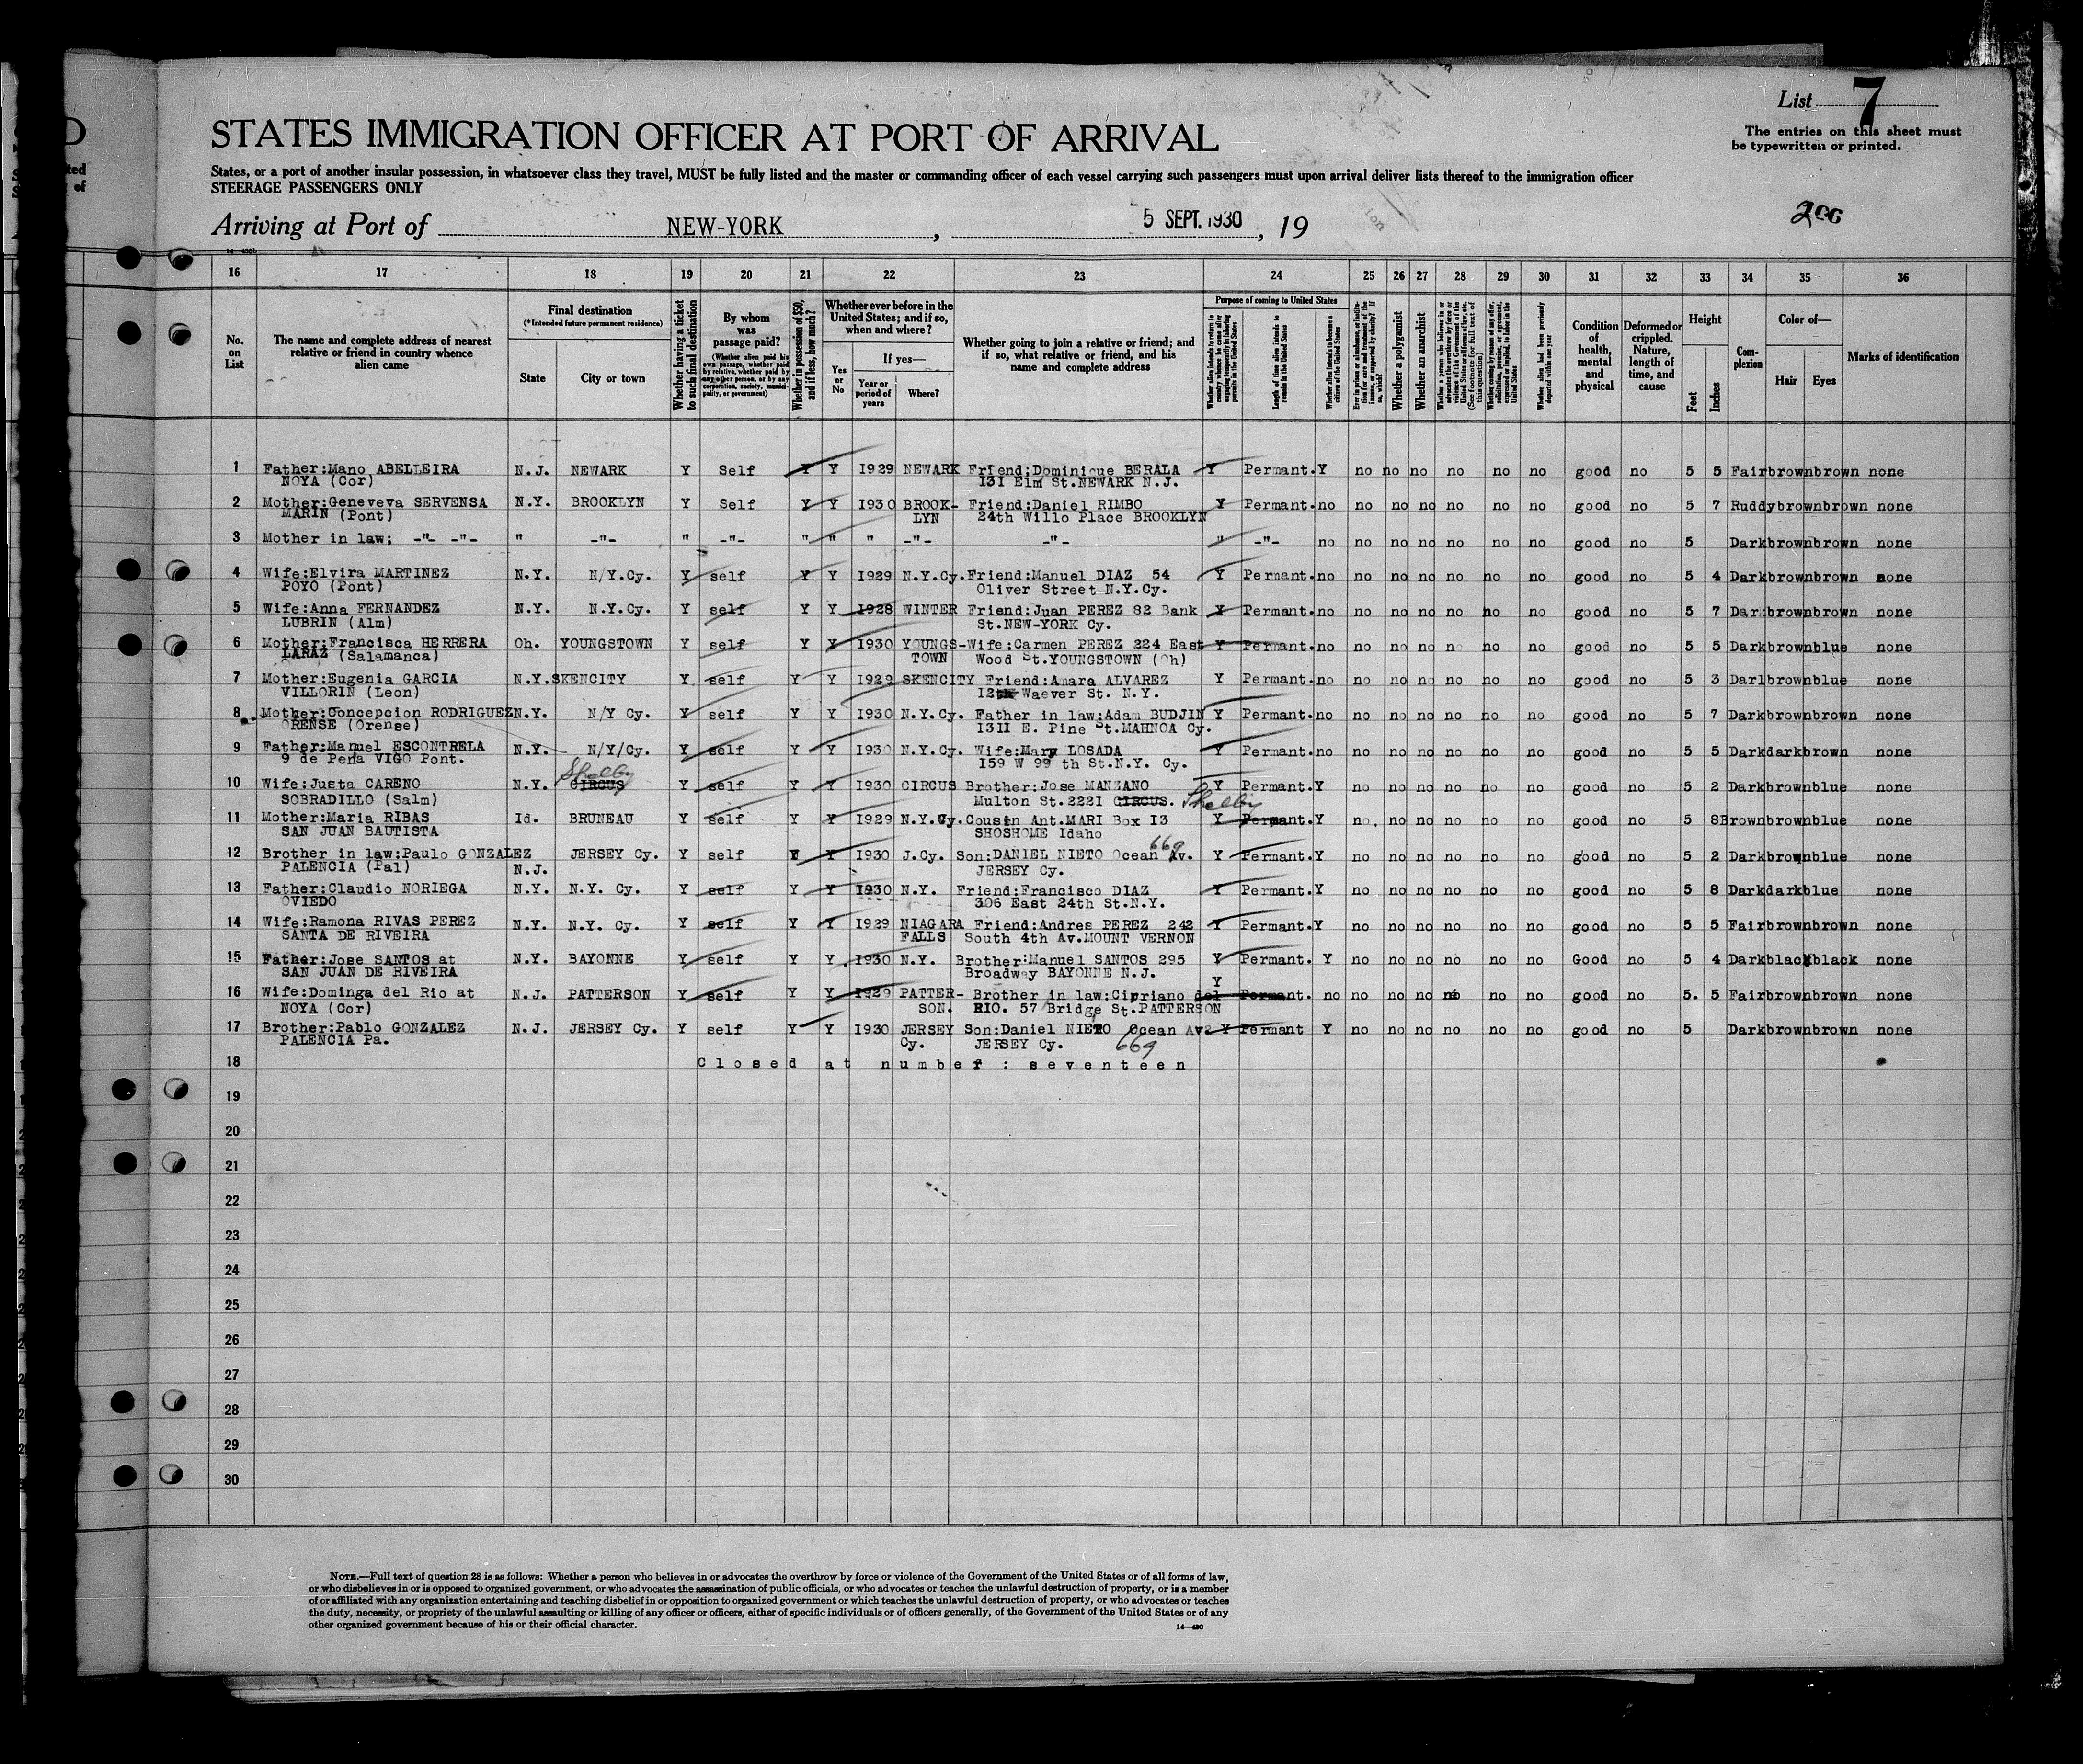 List 7
The entries on this sheet must
be typewritten or printed.
STATES IMMIGRATION OFFICER AT PORT OF ARRIVAL
States, or a port of another insular possession, in whatsoever class they travel, MUST be fully listed and the master or commanding officer of each vessel carrying such passengers must upon arrival deliver lists thereof to the immigration officer
STEERAGE PASSENGERS ONLY
Arriving at Port of NEW-YORK, 5 SEPT. 1930, 19
200
16 17 18 19 20 21 22 23 24 25 26 27 28 29 30 31 32 33 34 35 36
No. on List
The name and complete address of nearest relative or friend in country whence alien came
Final destination
(*Intended future permanent residence)
State
City or town
Whether having a ticket to such final destination
By whom was passage paid?
(Whether alien paid his own passage, whether paid by relative, whether paid by any other person, or by any corporation, society, municipality, or government)
Whether in possession of $50, and if less, how much?
Whether ever before in the United States; and if so, when and where?
Yes or No
If yes—
Year or period of years
Where?
Whether going to join a relative or friend; and if so, what relative or friend, and his name and complete address
Purpose of coming to United States
Whether a polygamist
Whether an anarchist
Condition of health, mental and physical
Deformed or crippled. Nature, length of time, and cause
Height
Feet
Inches
Complexion
Color of—
Hair
Eyes
Marks of identification
1 Father:Mano ABELLEIRA N.J. NEWARK Y Self Y Y 1929 NEWARK Friend:Dominique BERALA Y Permant. Y no no no no no no good no 5 5 Fair brown brown none
NOYA (Cor) 131 Elm St.NEWARK N.J.
2 Mother:Geneveva SERVENSA N.Y. BROOKLYN Y Self Y Y 1930 BROOK- Friend:Daniel RIMBO Y Permant. no no no no no no no good no 5 7 Ruddy brown brown none
MARIN (Pont) LYN 24th Willo Place BROOKLYN
3 Mother in law; -"- -"- " -"- " -"- " " " -"- -"- " -"- no no no no no no no good no 5 Dark brown brown none
4 Wife:Elvira MARTINEZ N.Y. N/Y.Cy. Y self Y Y 1929 N.Y.Cy. Friend:Manuel DIAZ 54 Y Permant. no no no no no no no good no 5 4 Dark brown brown none
POYO (Pont) Oliver Street N.Y.Cy.
5 Wife:Anna FERNANDEZ N.Y. N.Y.Cy. Y self Y Y 1928 WINTER Friend:Juan PEREZ 82 Bank Y Permant. no no no no no no no good no 5 7 Dark brown brown none
LUBRIN (Alm) St.NEW-YORK Cy.
6 Mother:Francisca HERRERA Oh. YOUNGSTOWN Y self Y Y 1930 YOUNGS- Wife:Carmen PEREZ 224 East Y Permant. no no no no no no no good no 5 5 Dark brown blue none
LARAZ (Salamanca) TOWN Wood St.YOUNGSTOWN (Oh)
7 Mother:Eugenia GARCIA N.Y. SKENCITY Y self Y Y 1929 SKENCITY Friend:Amara ALVAREZ Y Permant. no no no no no no no good no 5 3 Darl brown blue none
VILLORIN (Leon) 12th Waever St. N.Y.
8 Mother:Concepcion RODRIGUEZ N.Y. N/Y Cy. Y self Y Y 1930 N.Y.Cy. Father in law:Adam BUDJIN Y Permant. no no no no no no no good no 5 7 Dark brown brown none
ORENSE (Orense) 1311 E. Pine St.MAHNOA Cy.
9 Father:Manuel ESCONTRELA N.Y. N/Y/Cy. Y self Y Y 1930 N.Y.Cy. Wife:Mary LOSADA Y Permant. no no no no no no no good no 5 5 Dark dark brown none
9 de Peña VIGO Pont. 159 W 99 th St.N.Y. Cy.
Shelby
10 Wife:Justa CARENO N.Y. CIRCUS Y self Y Y 1930 CIRCUS Brother:Jose MANZANO Y Permant. Y no no no no no no good no 5 2 Dark brown blue none
SOBRADILLO (Salm) Multon St.2221 CIRCUS. Shelby
11 Mother:Maria RIBAS Id. BRUNEAU Y self Y Y 1929 N.Y.Cy. Cousin Ant.MARI Box 13 Y Permant. Y no. no no no no no good no 5 8 Brown brown blue none
SAN JUAN BAUTISTA SHOSHOME Idaho
669
12 Brother in law:Paulo GONZALEZ JERSEY Cy. Y self Y Y 1930 J.Cy. Son:DANIEL NIETO Ocean Av. Y Permant. Y no no no no no no good no 5 2 Dark brown blue none
PALENCIA (Pal) N.J. JERSEY Cy.
13 Father:Claudio NORIEGA N.Y. N.Y. Cy. Y self Y Y 1930 N.Y. Friend:Francisco DIAZ Y Permant. Y no no no no no no good no 5 8 Dark dark blue none
OVIEDO 306 East 24th St.N.Y.
14 Wife:Ramona RIVAS PEREZ N.Y. N.Y. Cy. Y self Y Y 1929 NIAGARA Friend:Andres PEREZ 242 Y Permant. Y no no no no no no good no 5 5 Fair brown brown none
SANTA DE RIVEIRA FALLS South 4th Av.MOUNT VERNON
15 Father:Jose SANTOS at N.Y. BAYONNE Y self Y Y. 1930 N.Y. Brother:Manuel SANTOS 295 Y Permant. Y no no no no no no Good no 5 4 Dark black black none
SAN JUAN DE RIVEIRA Broadway BAYONNE N.J.
16 Wife:Dominga del Rio at N.J. PATTERSON Y self Y Y 1929 PATTER- Brother in law:Cipriano del Y Permant. no no no no no no no good no 5. 5 Fair brown brown none
NOYA (Cor) SON. RIO. 57 Bridge St.PATTERSON
17 Brother:Pablo GONZALEZ N.J. JERSEY Cy. Y self Y Y 1930 JERSEY Son:Daniel NIETO Ocean Av. Y Permant Y no no no no no no good no 5 Dark brown brown none
PALENCIA Pa. Cy. JERSEY Cy. 669
18 Closed at number : seventeen
19
20
21
22
23
24
25
26
27
28
29
30
NOTE.—Full text of question 28 is as follows: Whether a person who believes in or advocates the overthrow by force or violence of the Government of the United States or of all forms of law,
or who disbelieves in or is opposed to organized government, or who advocates the assassination of public officials, or who advocates or teaches the unlawful destruction of property, or is a member
of or affiliated with any organization entertaining and teaching disbelief in or opposition to organized government or which teaches the unlawful destruction of property, or who advocates or teaches
the duty, necessity, or propriety of the unlawful assaulting or killing of any officer or officers, either of specific individuals or of officers generally, of the Government of the United States or of any
other organized government because of his or their official character.
14—480